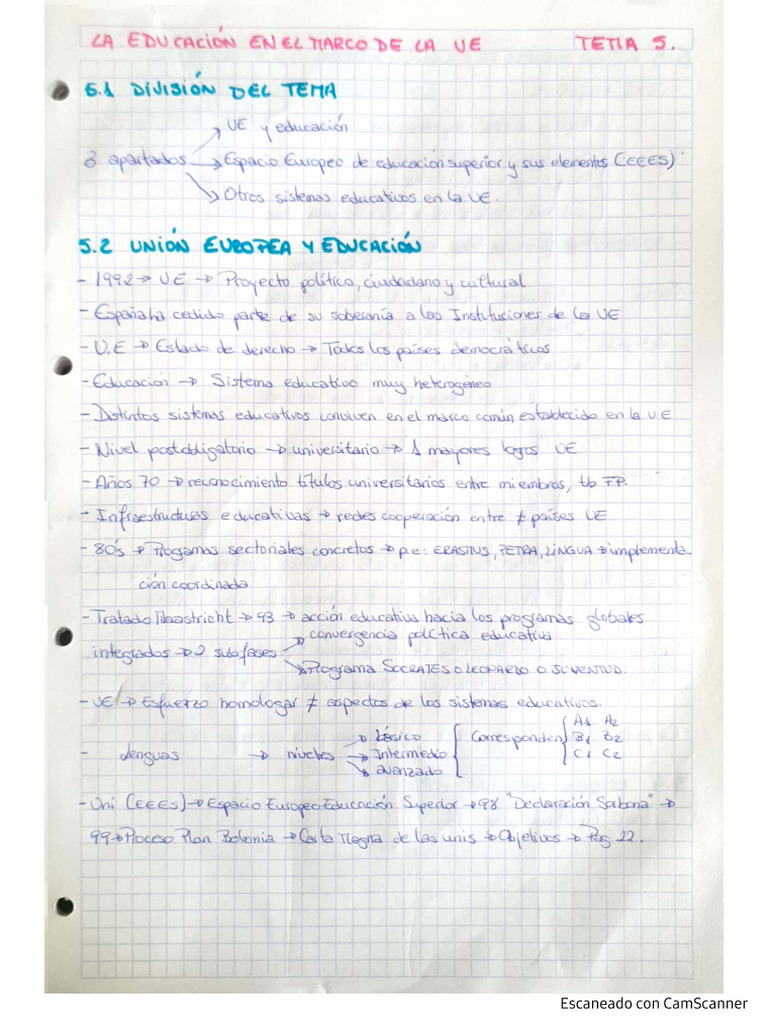 LA EDUCACIÓN EN EL MARCO DE LA UE TEMA 5.
5.1 DIVISIÓN DEL TEMA
→ UE y educación
3 apartados → Espacio Europeo de educación superior y sus elementos (EEES)
→ Otros sistemas educativos en la UE.
5.2 UNIÓN EUROPEA Y EDUCACIÓN
- 1992 → UE → Proyecto político, ciudadano y cultural
- España ha cedido parte de su soberanía a las Instituciones de la UE
- U.E → Estado de derecho → Todos los países democráticos
- Educación → Sistema educativo muy heterogéneo
- Distintos sistemas educativos conviven en el marco común establecido en la UE
- Nivel postobligatorio → universitario → 1 mayores logros UE
- Años 70 → reconocimiento títulos universitarios entre miembros, tb FP.
- Infraestructuras educativas → redes cooperación entre ≠ países UE
- 80's → Progamas sectoriales concretos → p.e: ERASMUS, PETRA, LINGUA → implementa
ción coordinada
- Tratado Maastricht → 93 → acción educativa hacia los programas globales
→ convergencia política educativa
integrados → 2 subfases
→ Programa SOCRATES o LEONARDO o JUVENTUD.
- UE → Esfuerzo homologar ≠ aspectos de los sistemas educativos.
→ básico { Corresponden { A1 A2
- lenguas → niveles → Intermedio B1 B2
→ avanzado C1 C2
- Uni (EEES) → Espacio Europeo Educación Superior → 98 "Declaración Sorbona" →
99 → Proceso Plan Bolonia → Carta Magna de las unis → Objetivos → Pag 22.
Escaneado con CamScanner